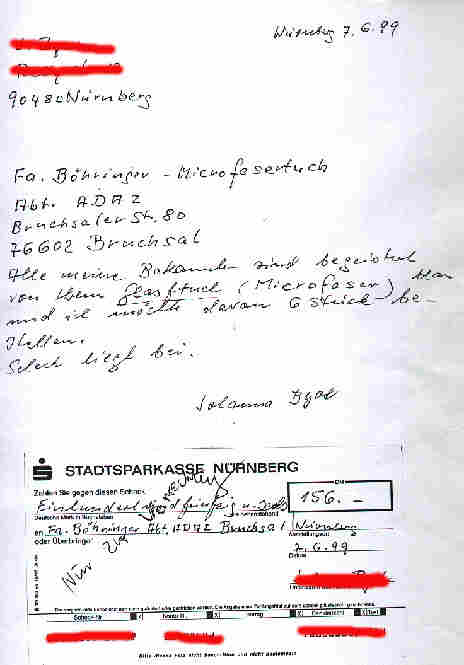 Nürnberg 7.6.99
90480 Nürnberg
Fa. Böhringer - Microfasertuch
Abt. ADAZ
Bruchsaler St. 80
76602 Bruchsal
Alle meine Bekannten sind begeistert
von Ihrem Glastuch (Microfaser) blau
und ich möchte davon 6 Stück be-
stellen.
Scheck liegt bei.
Johanna
STADTSPARKASSE NÜRNBERG
Zahlen Sie gegen diesen Scheck
DM
156.-
Einhundert
Deutsche Mark in Buchstaben
an Fa. Böhringer Abt. ADAZ Bruchsal Nürnberg
oder Überbringer
Ausstellungsort
7.6.99
Datum
Nur zur Verrechnung
Scheck-Nr. Konto-Nr. Betrag Bankleitzahl Text
Bitte dieses Feld nicht beschriften und nicht bestempeln